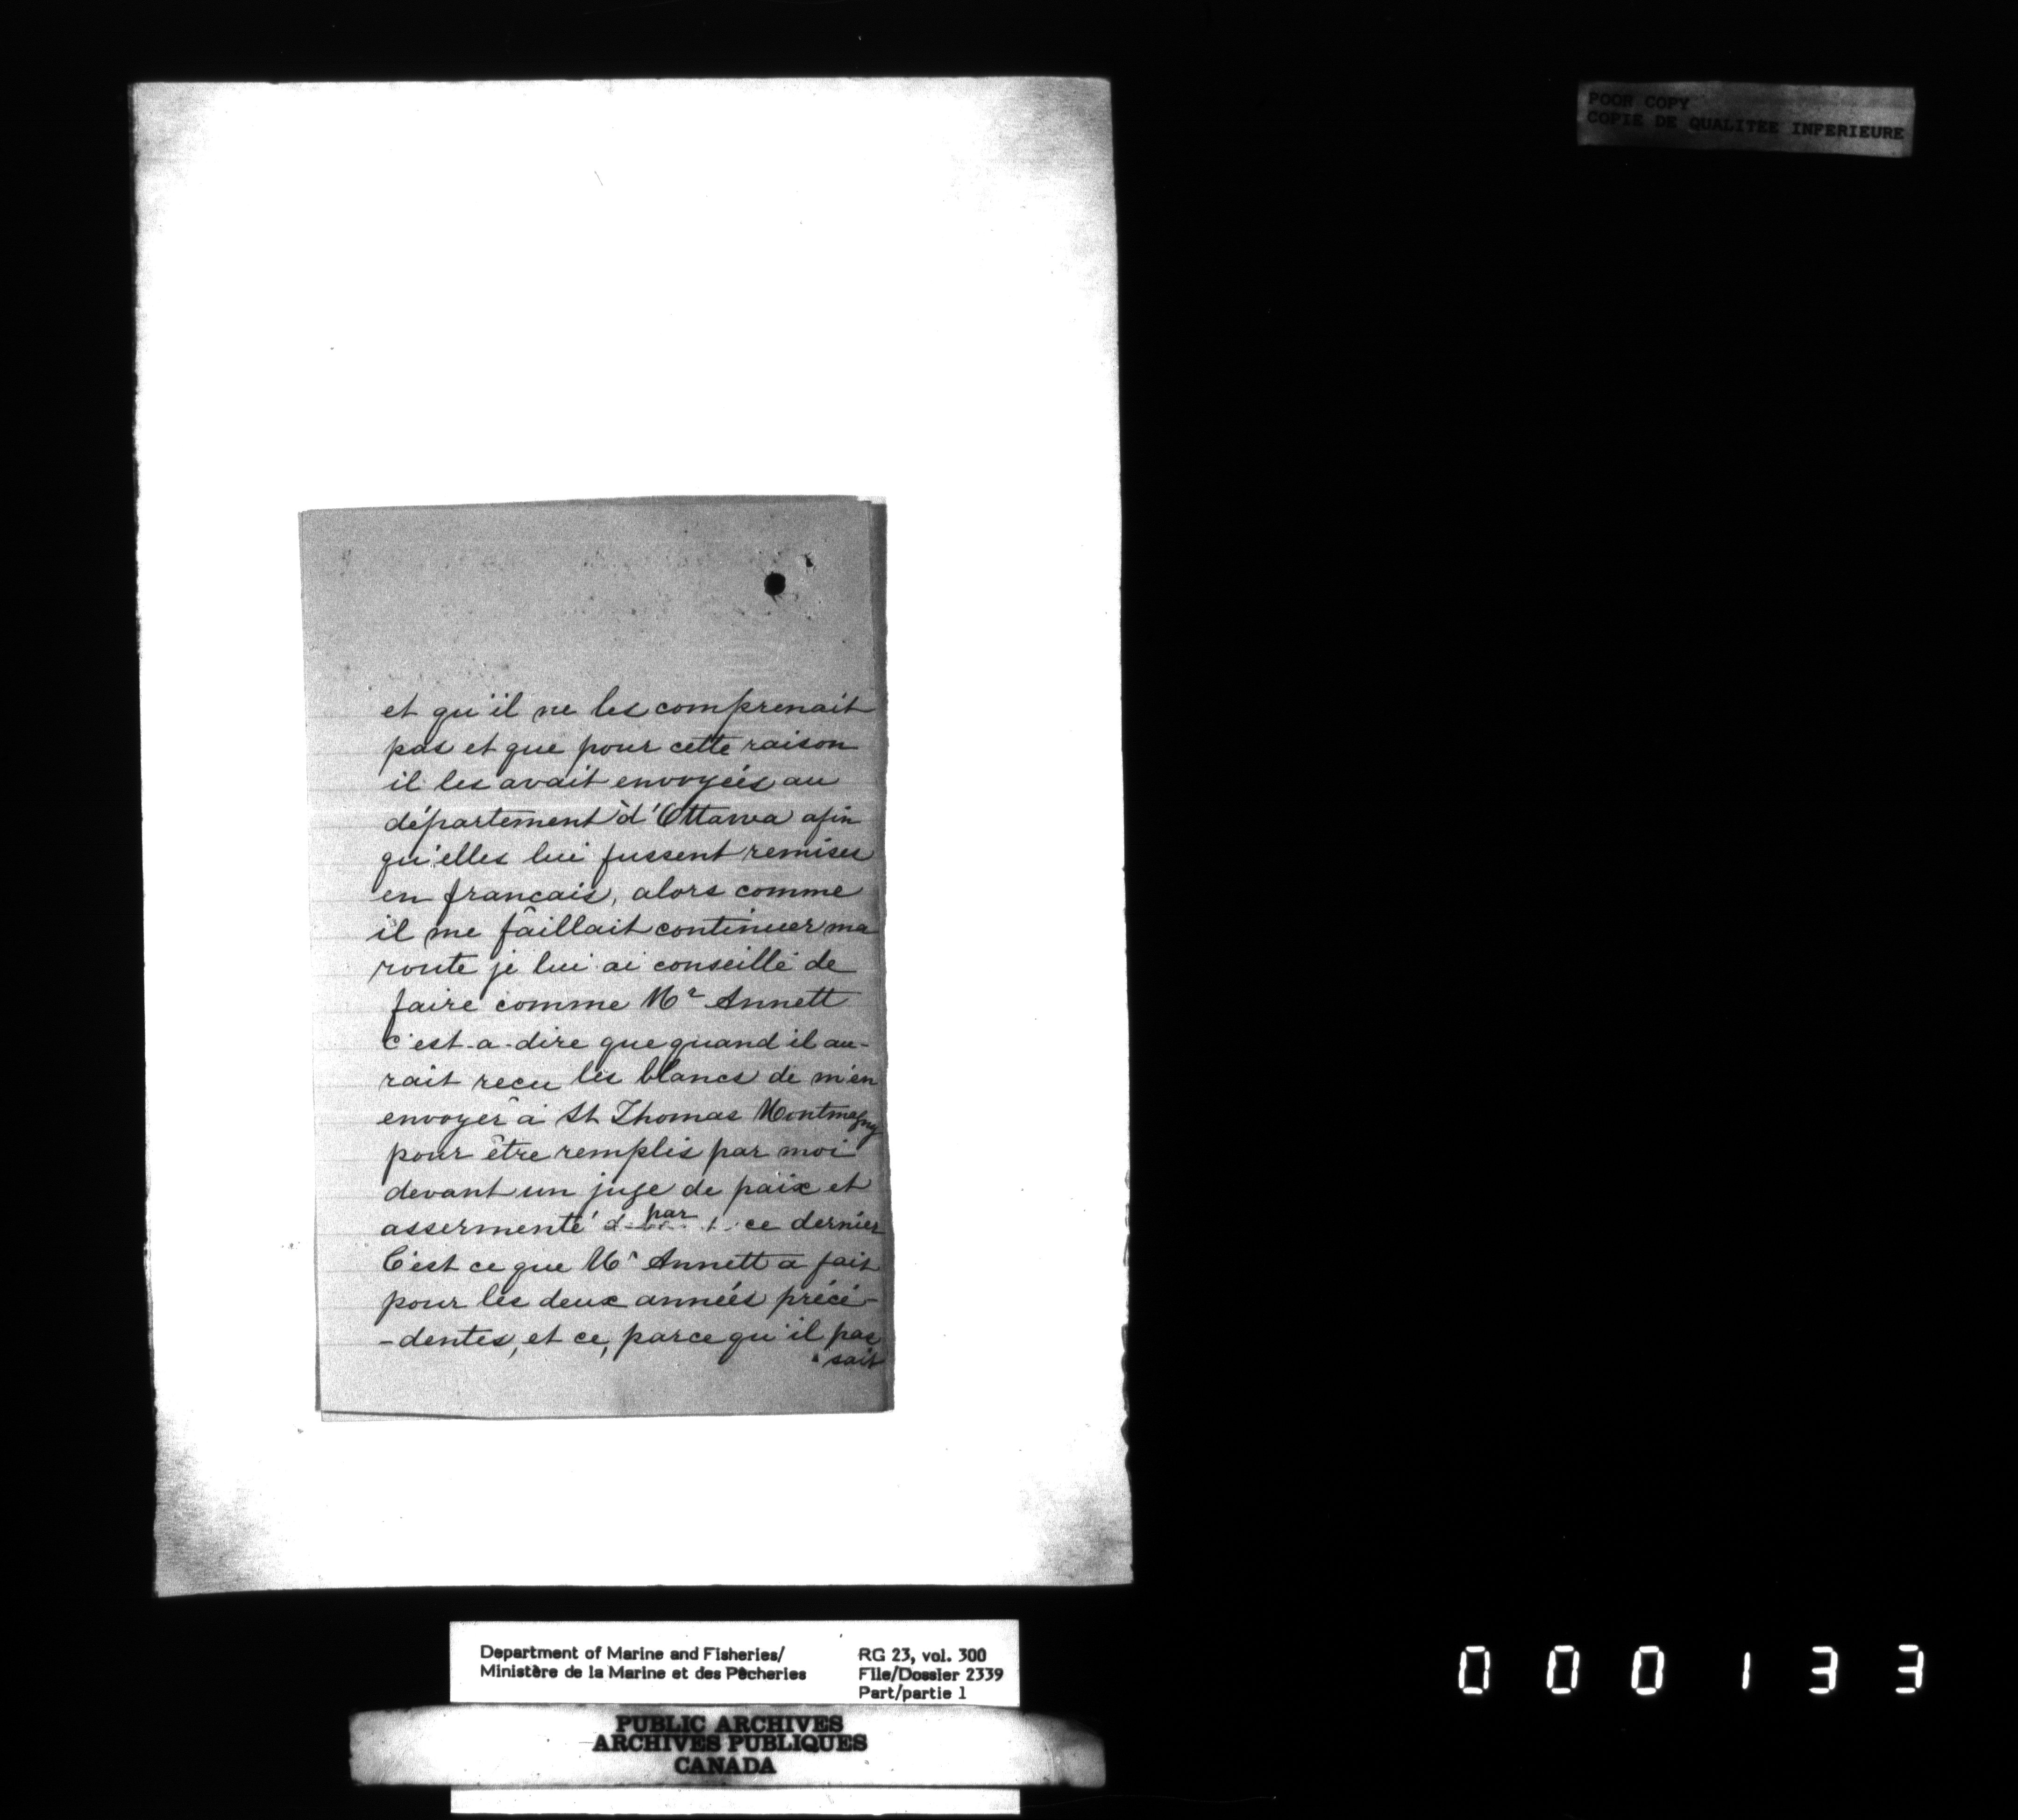 POOR COPY
COPIE DE QUALITEE INFERIEURE
et qu'il ne les comprenait
pas et que pour cette raison
il les avait envoyées au
département d'Ottawa afin
qu'elles lui fussent remises
en francais, alors comme
il me faillait continuer ma
route je lui ai conseillé de
faire comme Mr Annett
c'est-a-dire que quand il au-
rait recu les blancs de m'en
envoyer à St Thomas Montmagny
pour être remplis par moi
devant un juge de paix et
assermenté par ce dernier
C'est ce que Mr Annett a fait
pour les deux années précé-
-dentes, et ce, parce qu'il pas
sait
Department of Marine and Fisheries/
Ministère de la Marine et des Pêcheries
RG 23, vol. 300
File/Dossier 2339
Part/partie 1
PUBLIC ARCHIVES
ARCHIVES PUBLIQUES
CANADA
000133